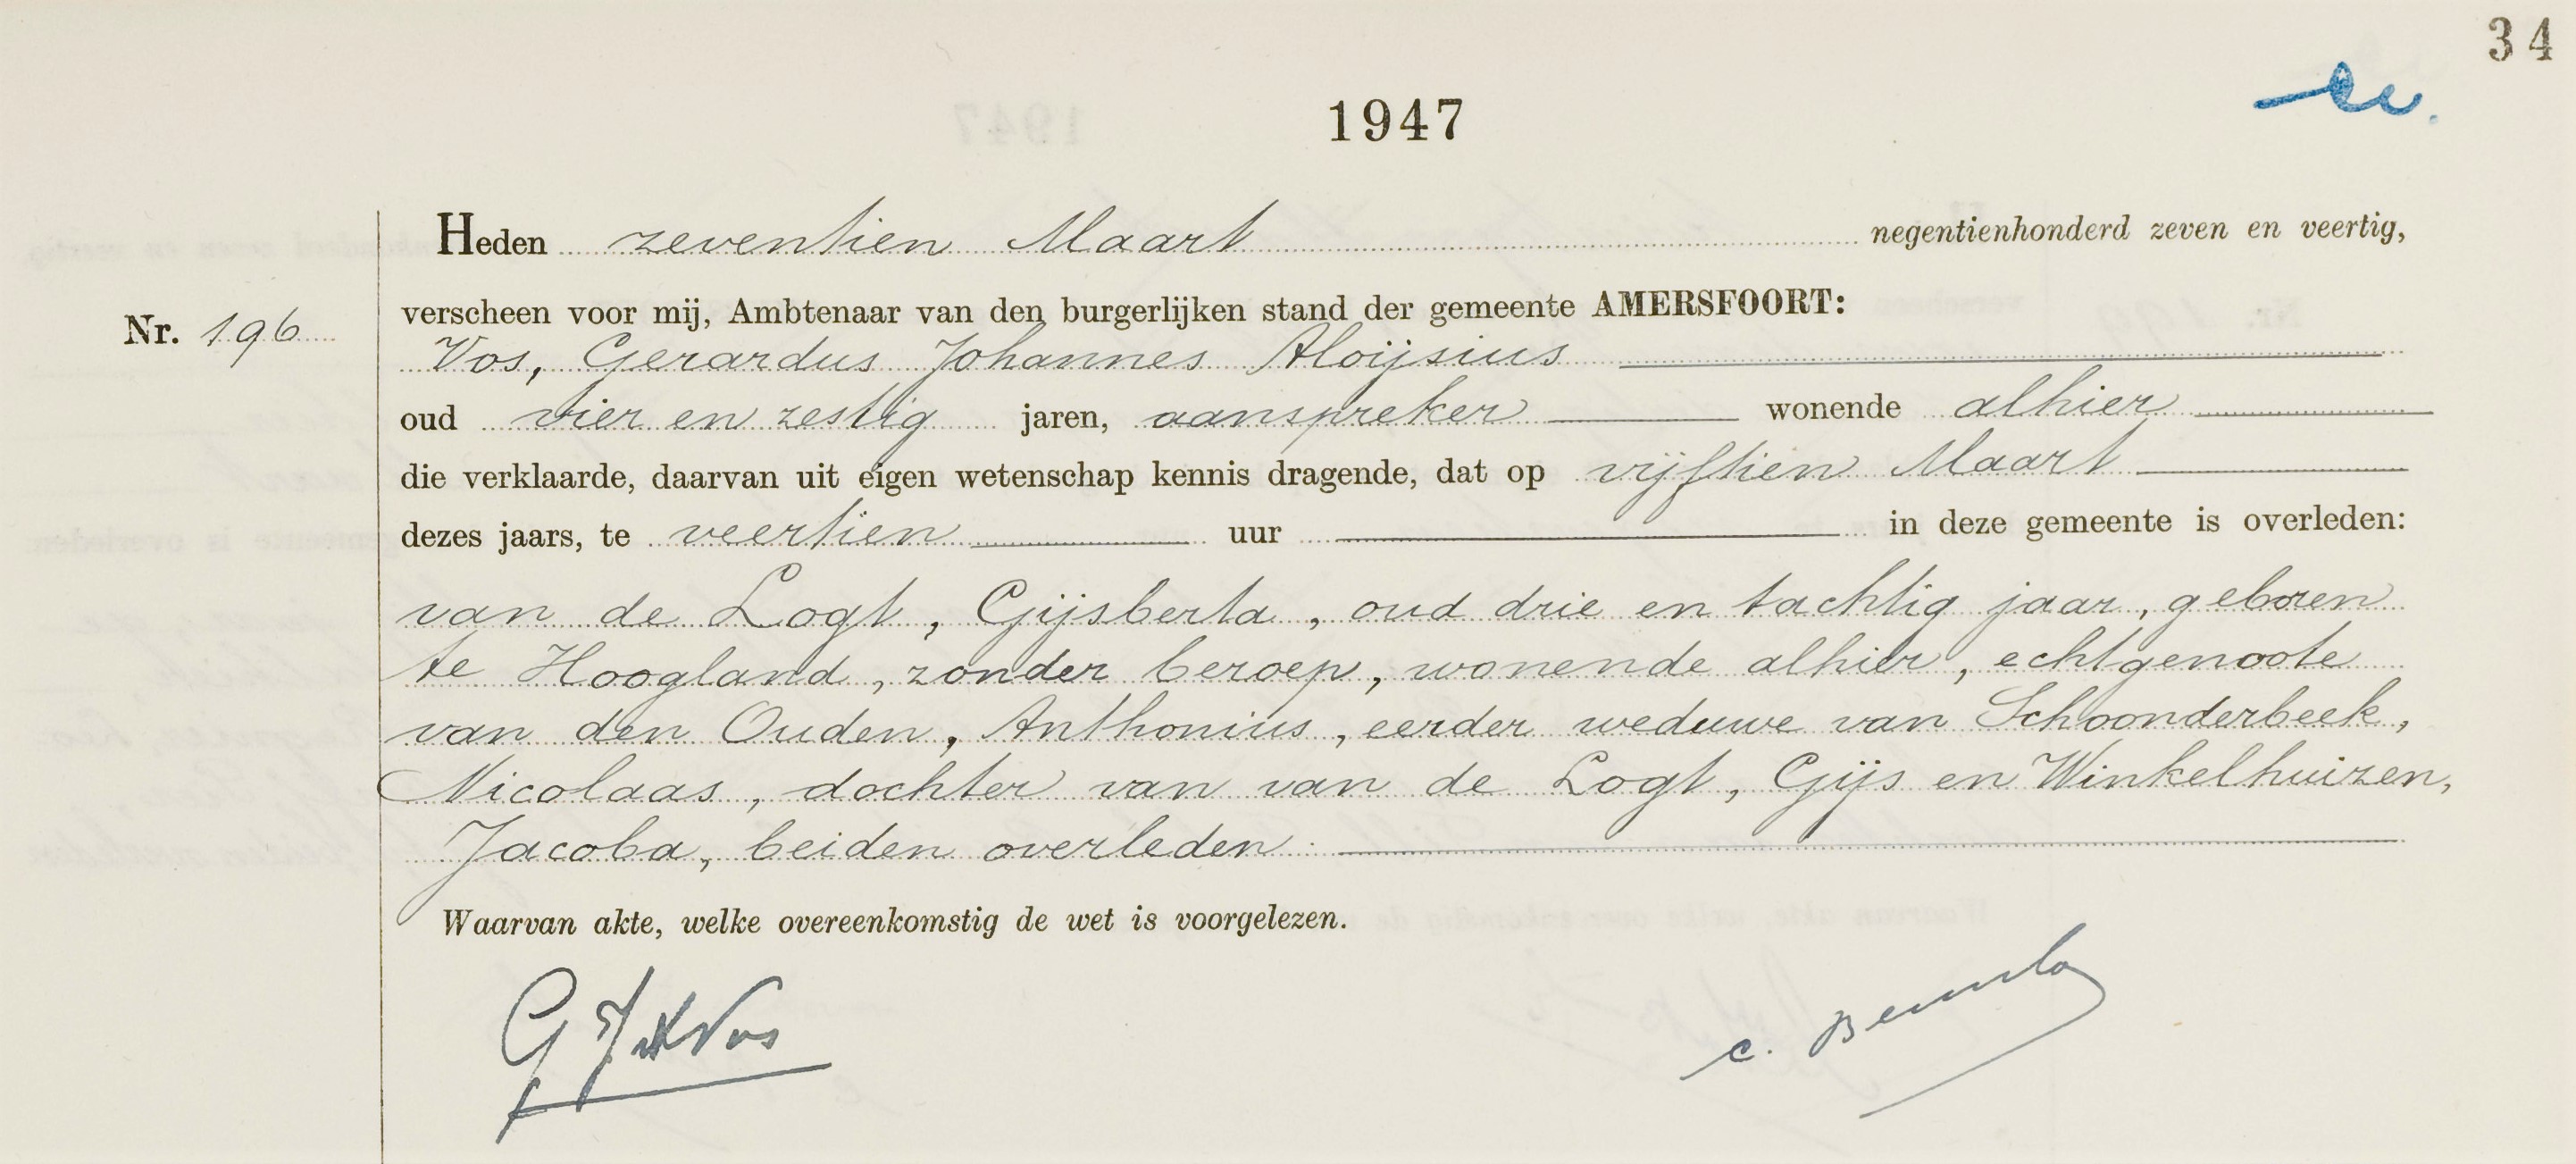 34
1947
Heden zeventien Maart negentienhonderd zeven en veertig,
Nr. 196
verscheen voor mij, Ambtenaar van den burgerlijken stand der gemeente AMERSFOORT:
Vos, Gerardus Johannes Aloijsius
oud vier en zestig jaren, aanspreker wonende alhier
die verklaarde, daarvan uit eigen wetenschap kennis dragende, dat op vijftien Maart
dezes jaars, te veertien uur in deze gemeente is overleden:
van de Logt, Gijsberta, oud drie en tachtig jaar, geboren
te Hoogland, zonder beroep, wonende alhier, echtgenoote
van den Ouden, Anthonius, eerder weduwe van Schoonderbeek,
Nicolaas, dochter van van de Logt, Gijs en Winkelhuizen,
Jacoba, beiden overleden.
Waarvan akte, welke overeenkomstig de wet is voorgelezen.
G J A Vos